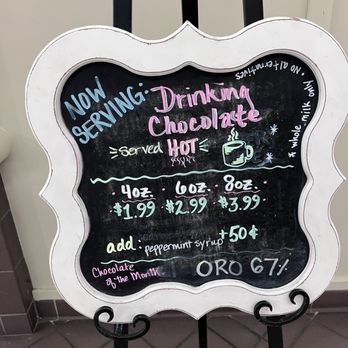 NOW
SERVING:
Drinking
Chocolate
served HOT
* whole milk only
• No alternatives
4oz. 6oz. 8oz.
$1.99 $2.99 $3.99
add: peppermint syrup +50¢
Chocolate
of the Month
ORO 67%